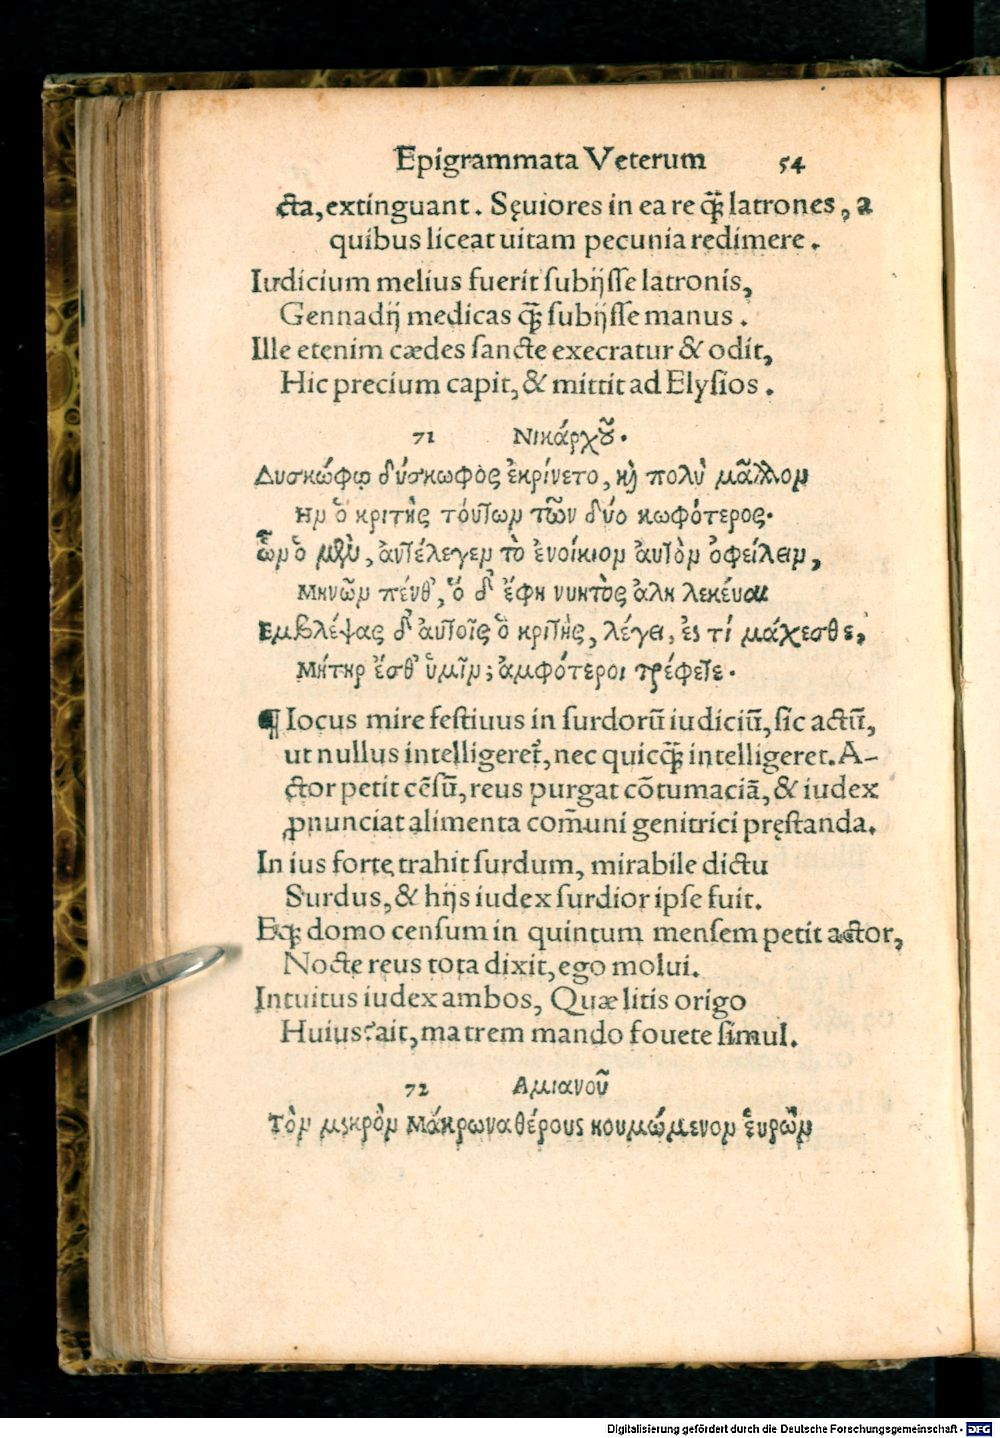 Epigrammata Veterum 54
cta, extinguant. Sęuiores in ea re q̃ȝ latrones, a
quibus liceat uitam pecunia redimere.
Iudicium melius fuerit ſubijſſe latronis,
Gennadij medicas q̃ȝ ſubijſſe manus.
Ille etenim cædes ſancte execratur & odit,
Hic precium capit, & mittit ad Elyſios.
71 Νικάρχου.
Δυσκώφῳ δύσκωφὸς ἐκρίνετο, καὶ πολὺ μᾶλλον
Ην ὁ κριτὴς τόυτων τῶν δύο κωφότερος.
ὧν ὁ μὲν, ἀντέλεγεν τὸ ἐνοίκιον ἀυτὸν ὀφείλειν,
Μηνῶν πένθ', ὁ δ' ἔφη νυκτὸς ἀλη λεκέναι
Εμβλέψας δ' ἀυτοῖς ὁ κριτὴς, λέγει, ἐς τί μάχεσθε,
Μήτηρ ἔσθ' ὑμῖν; ἀμφότεροι τρέφετε.
¶ Iocus mire feſtiuus in ſurdorũ iudiciũ, ſic actũ,
ut nullus intelligeret̃, nec quicq̃ȝ intelligeret. A-
ctor petit cẽſũ, reus purgat cõtumaciã, & iudex
ꝓnunciat alimenta com̃uni genitrici pręſtanda.
In ius forte trahit ſurdum, mirabile dictu
Surdus, & hijs iudex ſurdior ipſe fuit.
Eqȝ domo cenſum in quintum menſem petit actor,
Nocte reus tota dixit, ego molui.
Intuitus iudex ambos, Quæ litis origo
Huius? ait, matrem mando fouete ſimul.
72 Αμιανοῦ
Τὸν μικρὸν Μάκρωνα θέρους κουμώμενον ἑυρὼν